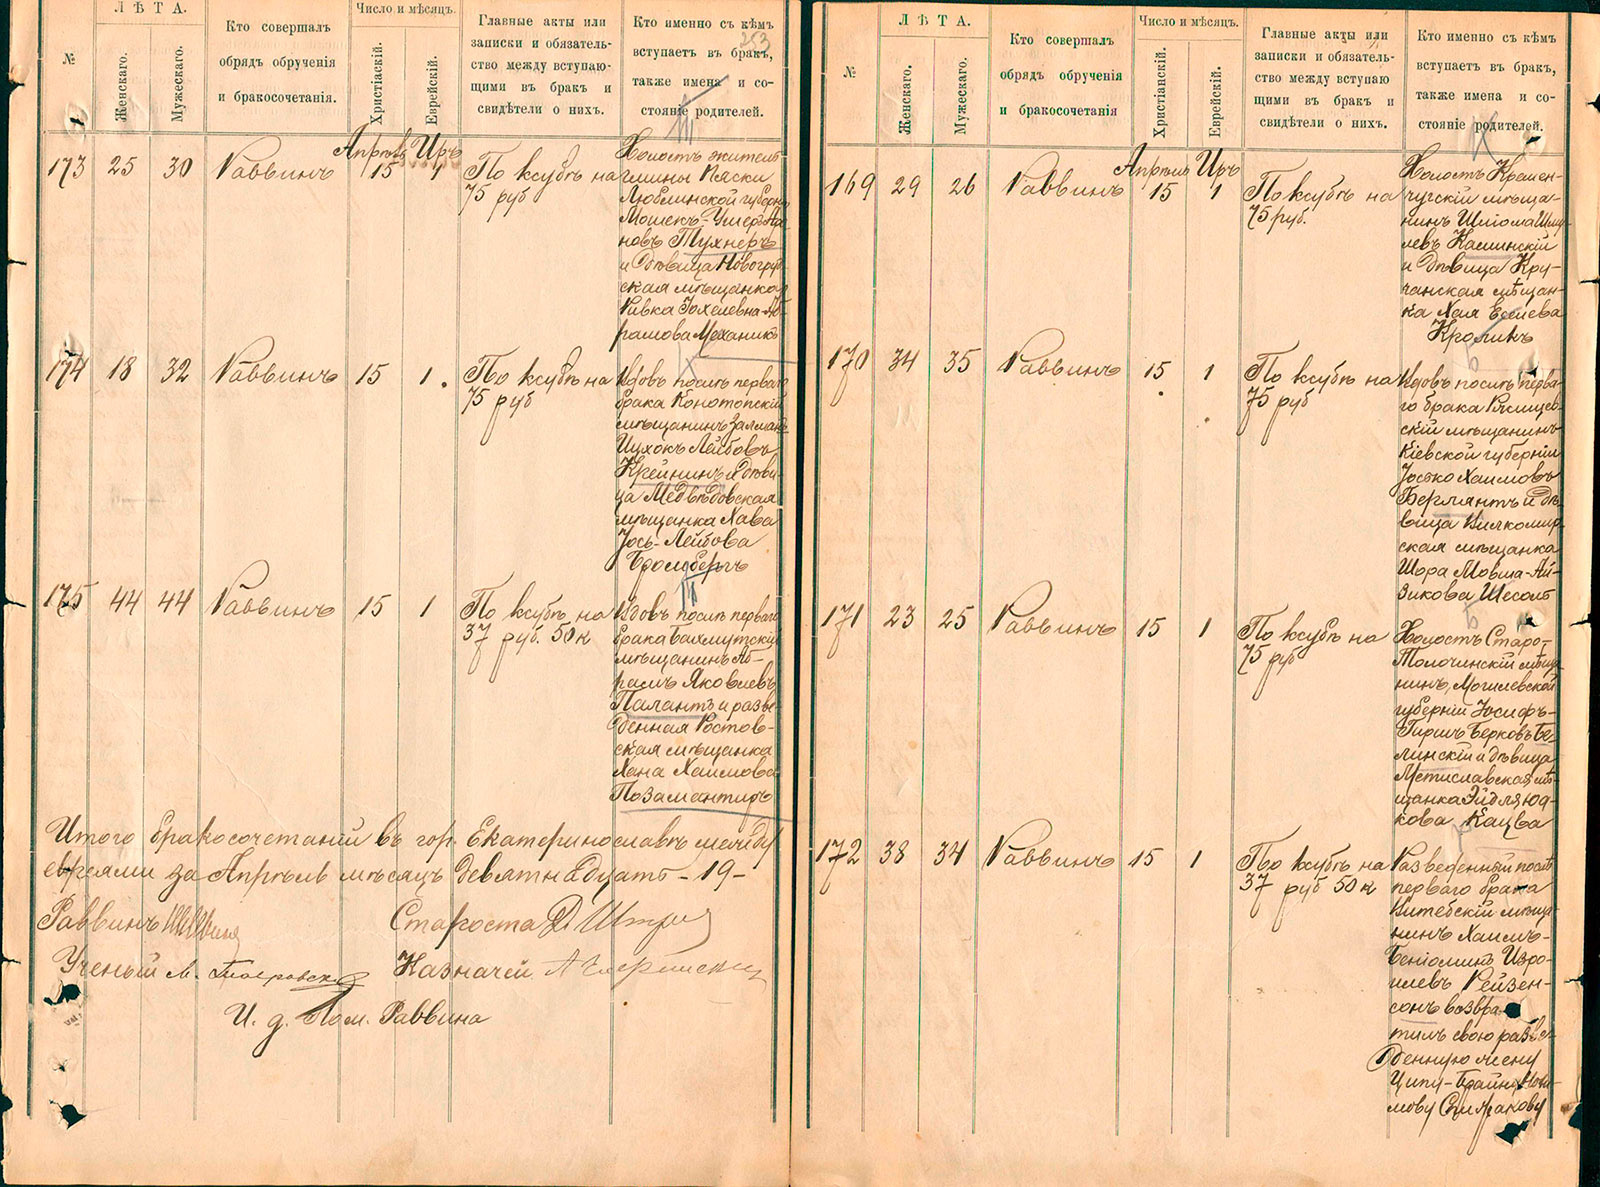 №
ЛѢТА.
Женскаго.
Мужескаго.
Кто совершалъ
обрядъ обрученія
и бракосочетанія.
Число и мѣсяцъ.
Христіаскій.
Еврейскій.
Главные акты или
записки и обязатель-
ство между вступаю-
щими въ бракъ и
свидѣтели о нихъ.
Кто именно съ кѣмъ
вступаетъ въ бракъ,
также имена и со-
стояніе родителей.
253
173 25 30 Раввинъ Апрѣль 15 Иръ 1
По ксубѣ на
75 руб
Холостъ жител
гмины Пяски
Люблинской губерн
Мошекъ-Ушеръ
новъ Тухнеръ
и дѣвица Новогруд
ская мѣщанка
Ривка Іохелевна-Аб
рамова Механикъ
174 18 32 Раввинъ 15 1.
По ксубѣ на
75 руб
Вдовъ послѣ перваго
брака Конотопскій
мѣщанинъ Залманъ
Ицхокъ Лейбовъ
Крейнинъ и дѣви
ца Медвѣдовская
мѣщанка Хава
Іось-Лейбова
Бромбергъ
175 44 44 Раввинъ 15 1
По ксубѣ на
37 руб. 50 к
Вдовъ послѣ перваго
брака Бахмутскій
мѣщанинъ Аб-
рамъ Яковлевъ
Палантъ и разве
денная Ростов-
ская мѣщанка
Хана Хаимова
Позаментиръ
Итого бракосочетаній въ гор. Екатеринославѣ между
евреями за Апрѣль мѣсяцъ девятнадцать - 19 -
Раввинъ
Староста Д. Штри
Ученый М.
Казначей А
И. д. Пом. Раввина
№
ЛѢТА.
Женскаго.
Мужескаго.
Кто совершалъ
обрядъ обрученія
и бракосочетанія
Число и мѣсяцъ.
Христіанскій.
Еврейскій.
Главные акты или
записки и обязатель-
ство между вступаю
щими въ бракъ и
свидѣтели о нихъ.
Кто именно съ кѣмъ
вступаетъ въ бракъ,
также имена и со-
стояніе родителей.
169 29 26 Раввинъ Апрѣль 15 Иръ 1
По ксубѣ на
75 руб.
Холостъ Кремен-
чугскій мѣща-
нинъ Шліома Шму
левъ Каминскій
и дѣвица Кру-
чанская мѣщан-
ка Хая Евсѣева
Кроликъ
170 34 35 Раввинъ 15 1
По ксубѣ на
75 руб
Вдовъ послѣ перва-
го брака Ржищев-
скій мѣщанинъ
Кіевской губерніи
Іосько Хаимовъ
Бергмантъ и дѣ
вица Вилкомир-
ская мѣщанка
Шора Мовша-Ай-
зикова Шесолъ
171 23 25 Раввинъ 15 1
По ксубѣ на
75 руб
Холостъ Старо-
Толочинскій мѣща
нинъ, Могилевской
губерніи Іосифъ-
Гиршъ Берковъ Бе-
линскій и дѣвица
Мстиславская мѣ
щанка Эйдля Юд-
кова Кацва
172 38 34 Раввинъ 15 1
По ксубѣ на
37 руб 50 к
Разведенный послѣ
перваго брака
Витебскій мѣща-
нинъ Хаимъ-
Беніоминъ Изро-
илевъ Рейзен-
сонъ возвра-
тилъ свою разве-
денную жену
Ципу-Брайну Нохи-
мову